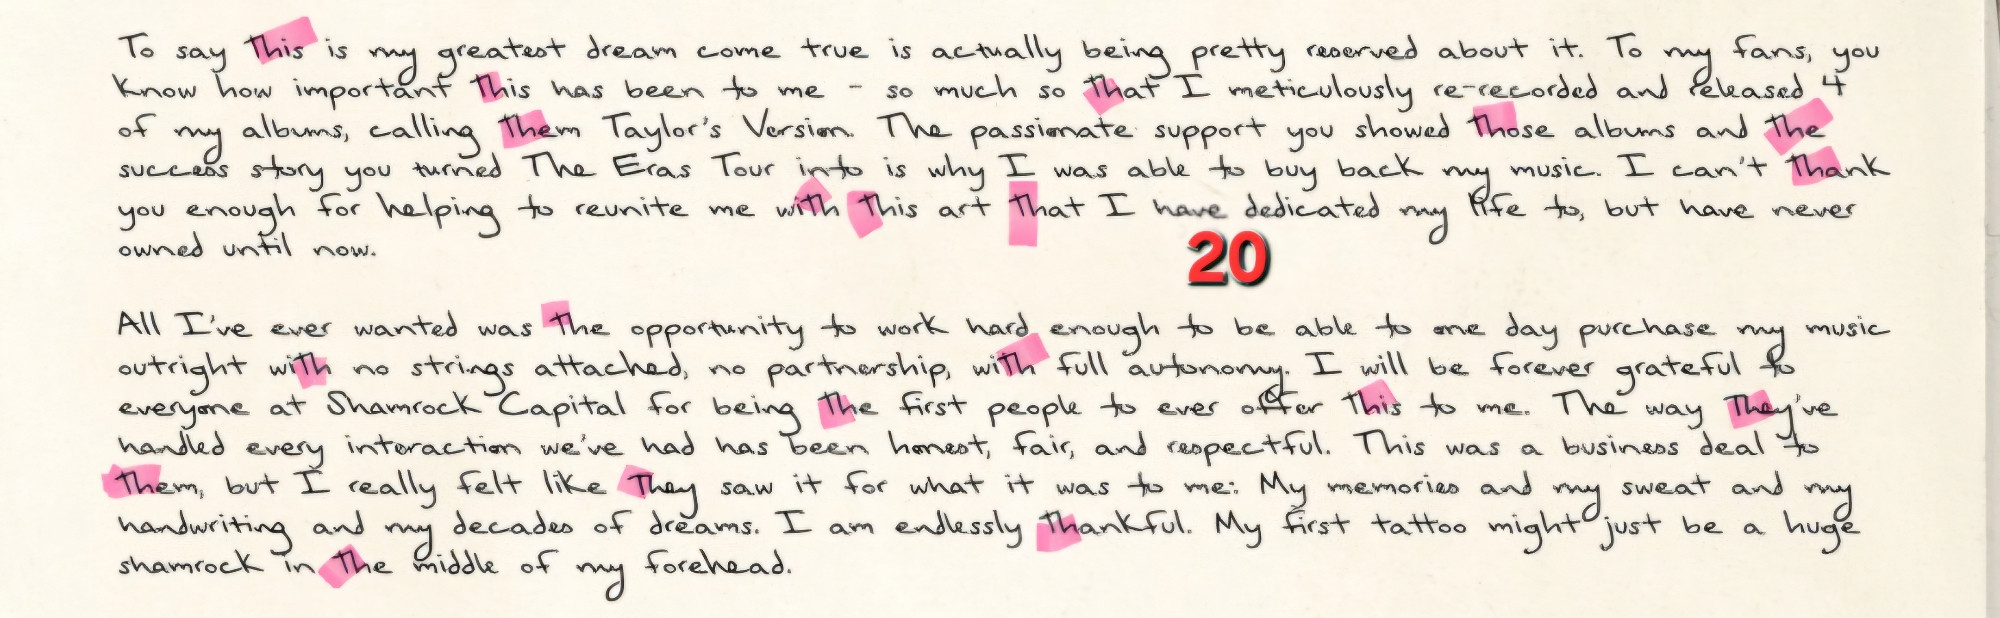 To say this is my greatest dream come true is actually being pretty reserved about it. To my fans, you
know how important this has been to me - so much so that I meticulously re-recorded and released 4
of my albums, calling them Taylor's Version. The passionate support you showed those albums and the
success story you turned The Eras Tour into is why I was able to buy back my music. I can't thank
you enough for helping to reunite me with this art that I have dedicated my life to, but have never
owned until now.
20
All I've ever wanted was the opportunity to work hard enough to be able to one day purchase my music
outright with no strings attached, no partnership, with full autonomy. I will be forever grateful to
everyone at Shamrock Capital for being the first people to ever offer this to me. The way they've
handled every interaction we've had has been honest, fair, and respectful. This was a business deal to
them, but I really felt like they saw it for what it was to me: My memories and my sweat and my
handwriting and my decades of dreams. I am endlessly thankful. My first tattoo might just be a huge
shamrock in the middle of my forehead.